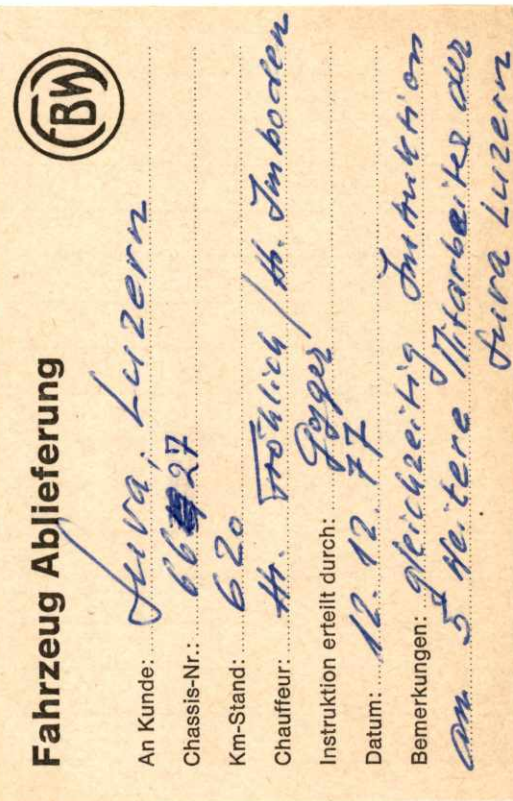 Fahrzeug Ablieferung
CBW
An Kunde: Suva, Luzern
Chassis-Nr.: 66 27
Km-Stand: 620
Chauffeur: Hr. Fröhlich / Hr. Imboden
Instruktion erteilt durch: Gyger
Datum: 12.12.77
Bemerkungen: gleichzeitig Instruktion
an 5 weitere Mitarbeiter der
Suva Luzern